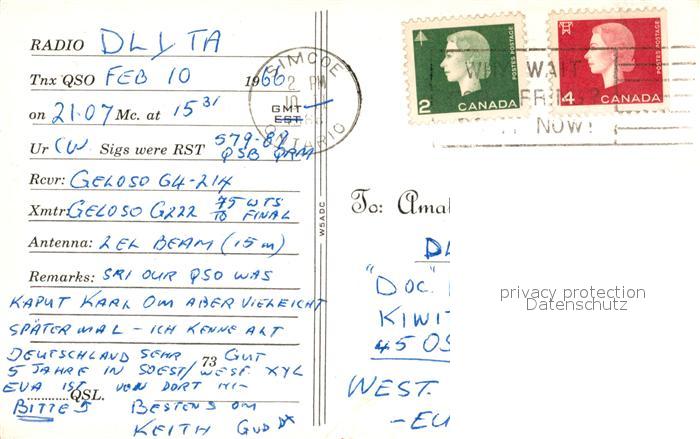 RADIO DL1TA
Tnx QSO FEB 10 1966
on 21.07 Mc. at 15 31 GMT EST
Ur CW Sigs were RST 579-89
QSB QRM
Rcvr: GELOSO G4-214
Xmtr: GELOSO G222 75 WTS
TO FINAL
Antenna: 2 EL BEAM (15 m)
Remarks: SRI OUR QSO WAS
KAPUT KARL OM ABER VIELEICHT
SPÄTER MAL - ICH KENNE ALT
DEUTSCHLAND SEHR 73 GUT
5 JAHRE IN SOEST/WESF. XYL
EVA IST VON DORT HI-
QSL.
BITTE BESTENS OM
KEITH GUD DX
W5ADC
SIMCOE
2 PM
10
ONTARIO
WHY WAIT
NOW!
2 CANADA
POSTES POSTAGE
4 CANADA
POSTES POSTAGE
To: Ama
DL
"DOC."
KIWIT
45 OS
WEST.
-EU
privacy protection
Datenschutz